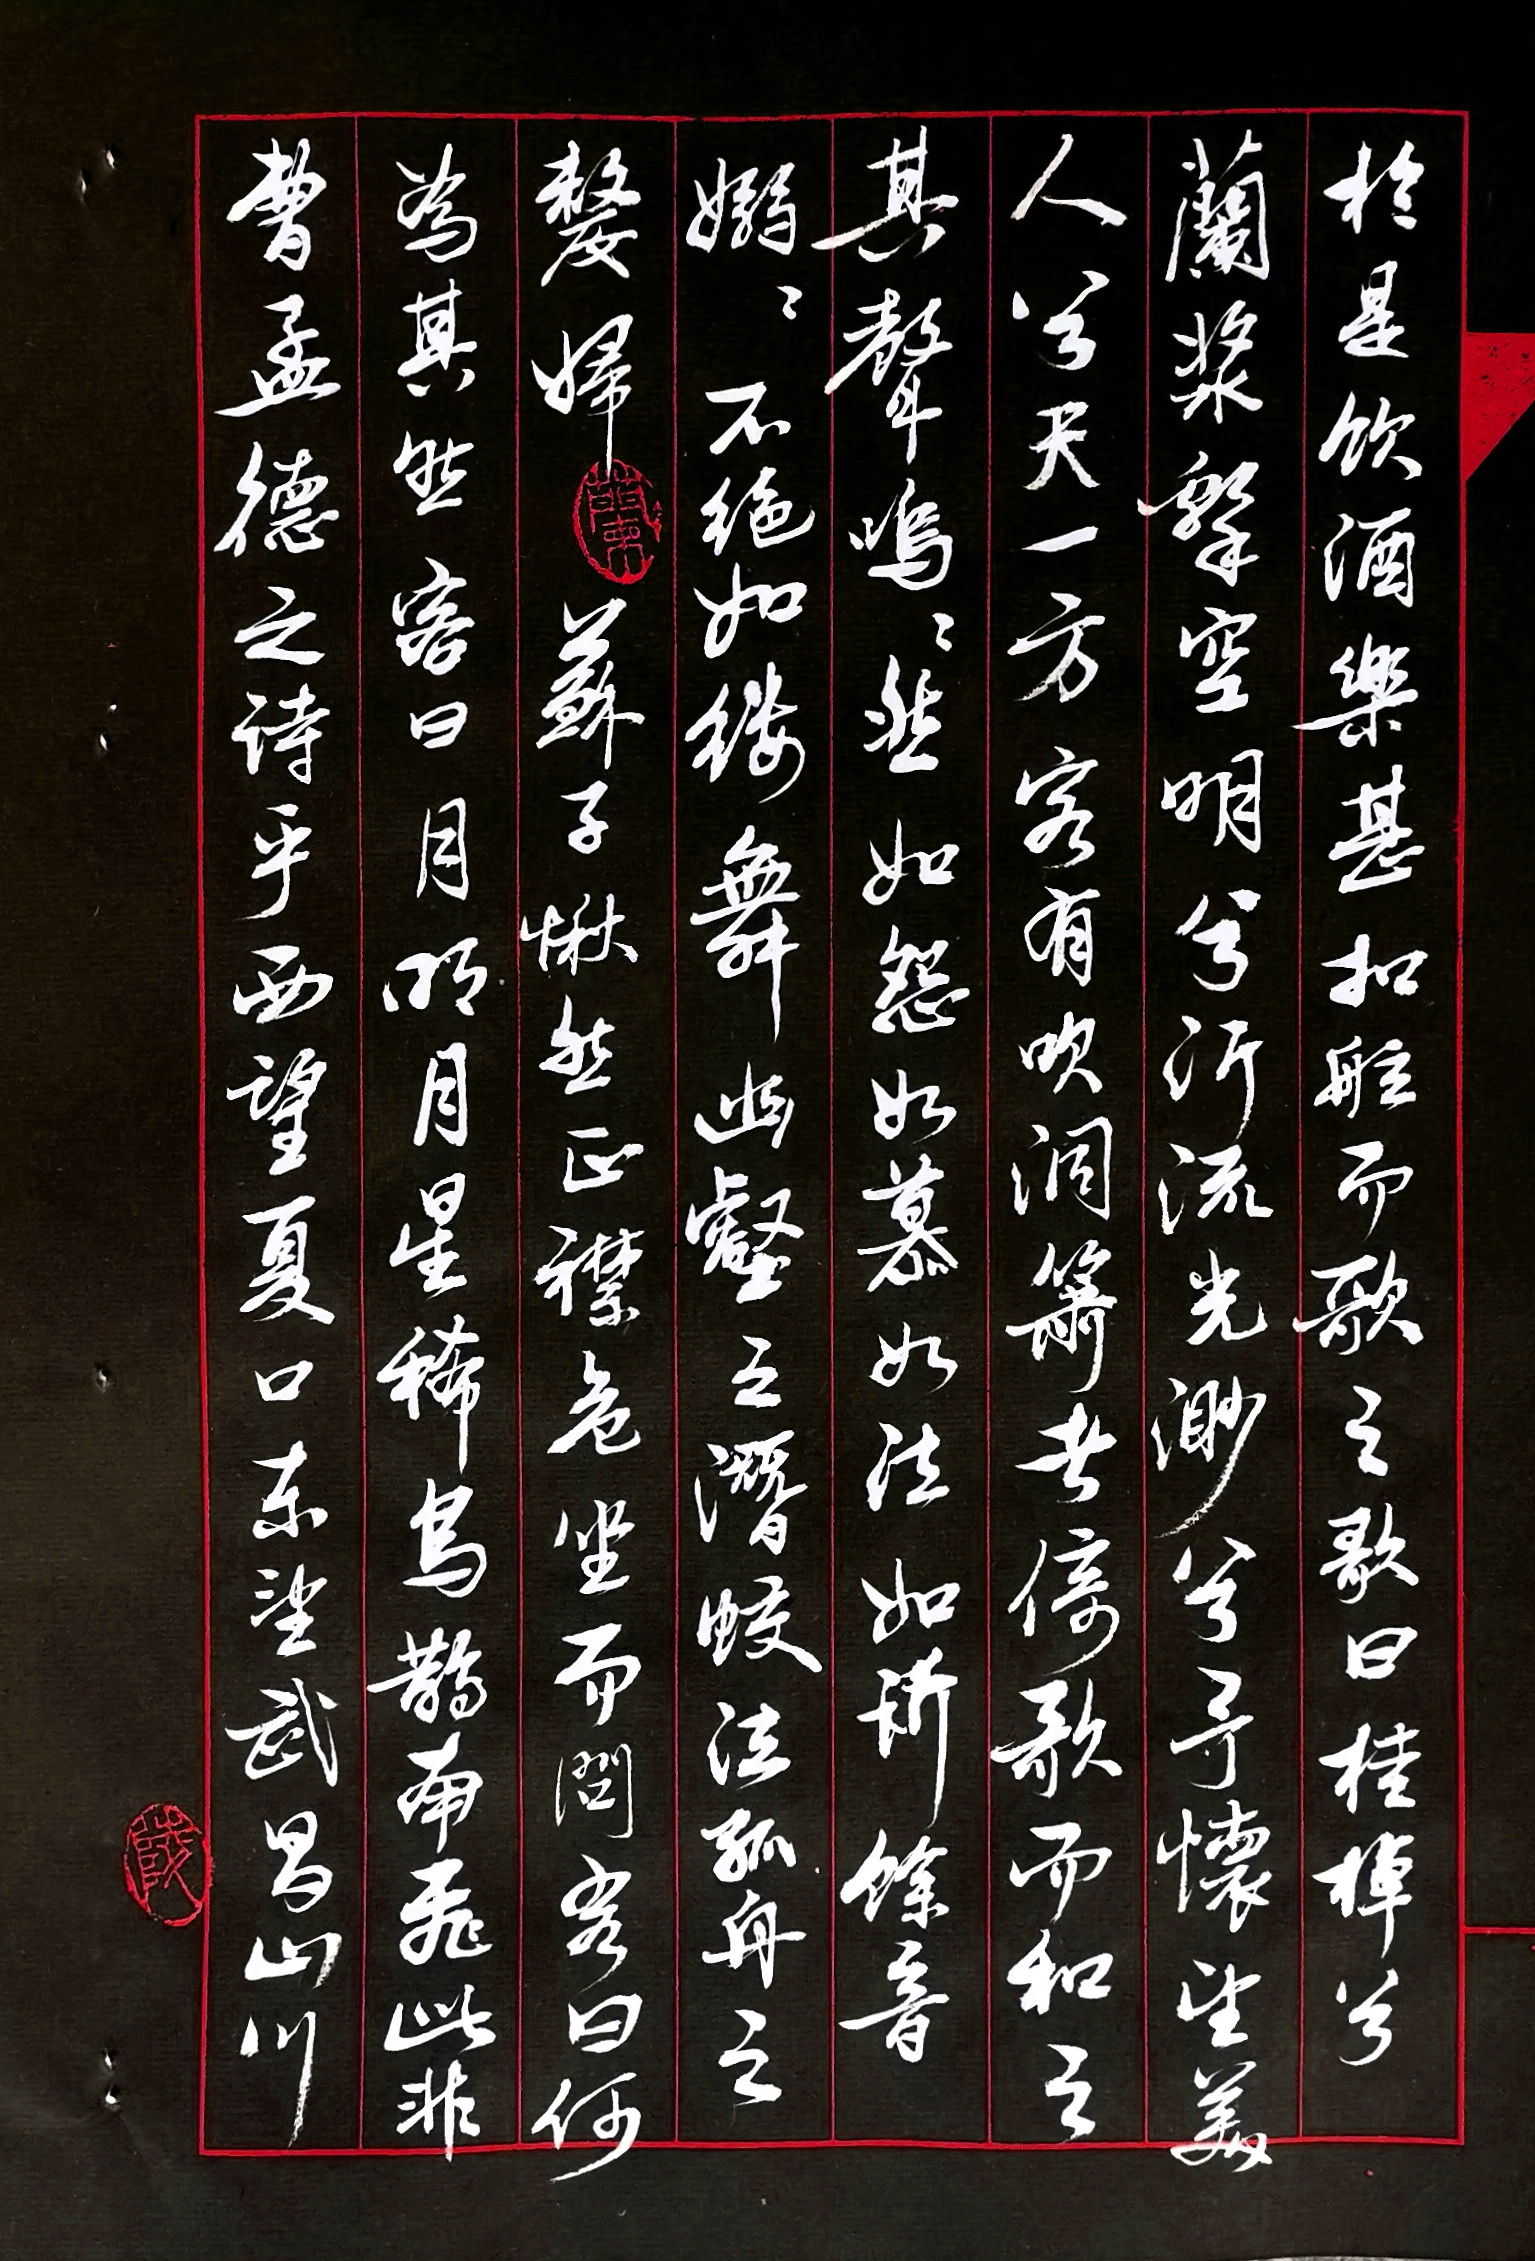 於是飲酒樂甚扣舷而歌之歌曰桂棹兮
蘭槳擊空明兮泝流光渺兮予懷望美
人兮天一方客有吹洞簫者倚歌而和之
其聲嗚〻然如怨如慕如泣如訴餘音
嫋〻不絕如縷舞幽壑之潛蛟泣孤舟之
嫠婦蘇子愀然正襟危坐而問客曰何
為其然客曰月明月星稀烏鵲南飛此非
曹孟德之詩乎西望夏口東望武昌山川